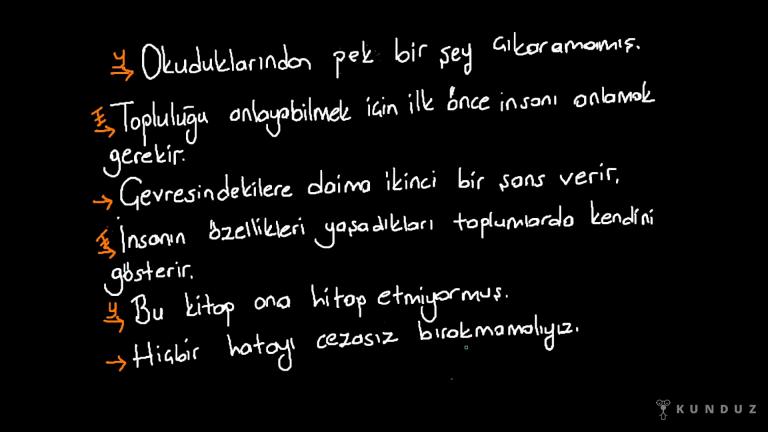 y Okuduklarından pek bir şey çıkaramamış.
I Topluluğu anlayabilmek için ilk önce insanı anlamak
gerekir.
→ Çevresindekilere daima ikinci bir şans verir.
I İnsanın özellikleri yaşadıkları toplumlarda kendini
gösterir.
y Bu kitap ona hitap etmiyormuş.
→ Hiçbir hatayı cezasız bırakmamalıyız.
KUNDUZ